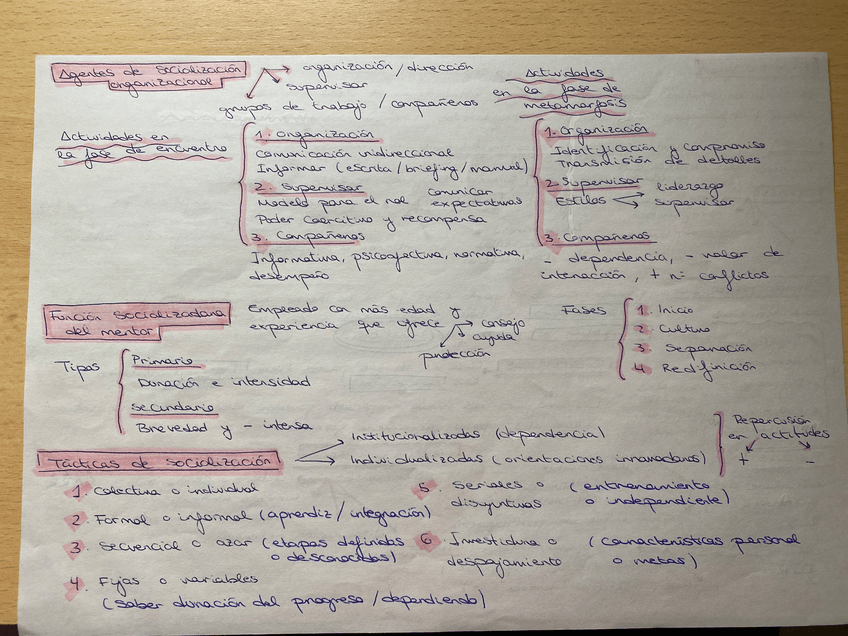 Agentes de socialización
organizacional
organización / dirección
supervisor
grupos de trabajo / compañeros
Actividades en
la fase de encuentro
1. Organización
Comunicación unidireccional
Informar (escrita / briefing / manual)
2. Supervisor
Modelo para el rol
comunicar
expectativas
Poder coercitivo y recompensa
3. Compañeros
Informativa, psicoafectiva, normativa,
desempeño
Actividades
en la fase de
metamorfosis
1. Organización
Identificación y compromiso
Transmisión de detalles
2. Supervisor
Estilos
liderazgo
supervisor
3. Compañeros
- dependencia, - valor de
interacción, + nº conflictos
Función socializadora
del mentor
Empleado con más edad y
experiencia que ofrece
consejo
ayuda
protección
Fases
1. Inicio
2. Cultivo
3. Separación
4. Redifinición
Tipos
Primario
Duración e intensidad
Secundario
Brevedad y - intensa
Tácticas de socialización
Institucionalizadas (dependencia)
Individualizadas (orientaciones innovadoras)
Repercusión
en actitudes
+ -
1. Colectiva o individual
2. Formal o informal (aprendiz / integración)
3. Secuencial o azar (etapas definidas
o desconocidas)
4. Fijas o variables
(Saber duración del progreso / dependiendo)
5. Seriales o
disyuntivas
(entrenamiento
o independiente)
6. Investidura o
despojamiento
(características personal
o metas)